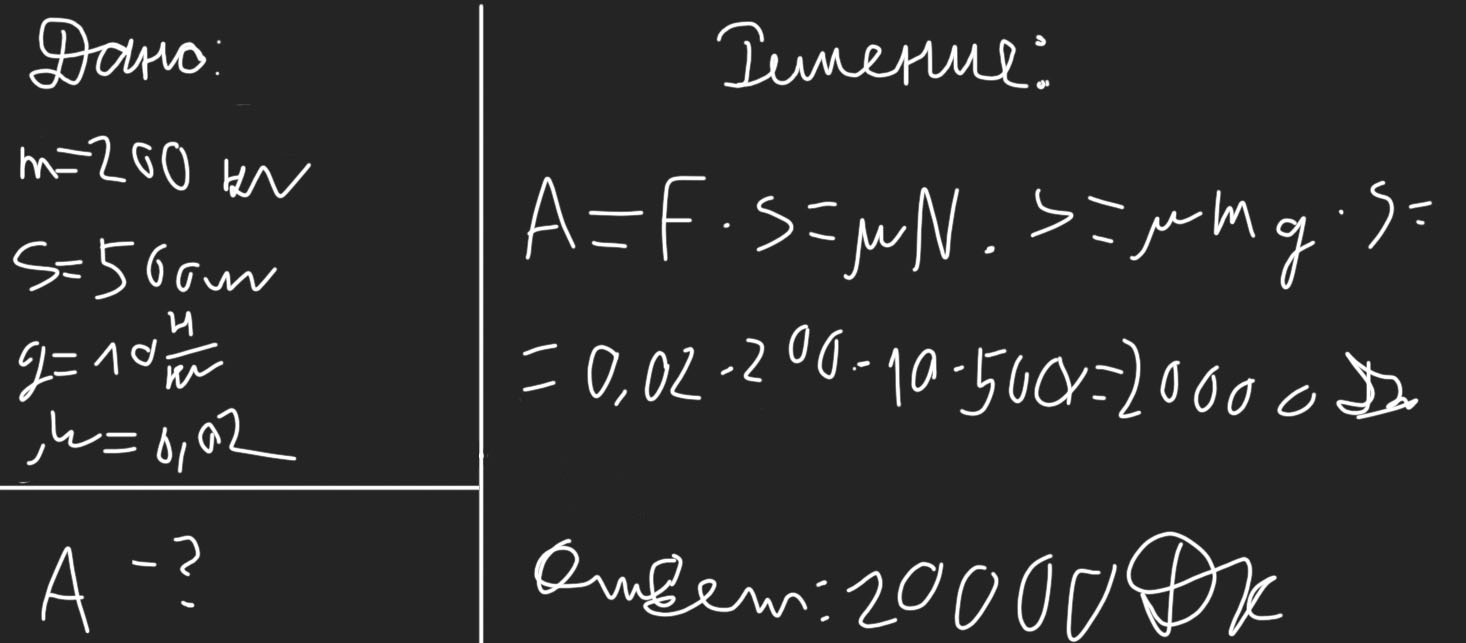 Дано:
m=200 кг
S=500 м
g=10 Н/кг
μ=0,02
A - ?
Решение:
A=F·S=μN·S=μmg·S=
=0,02·200·10·500=20000 Дж
Ответ: 20000 Дж